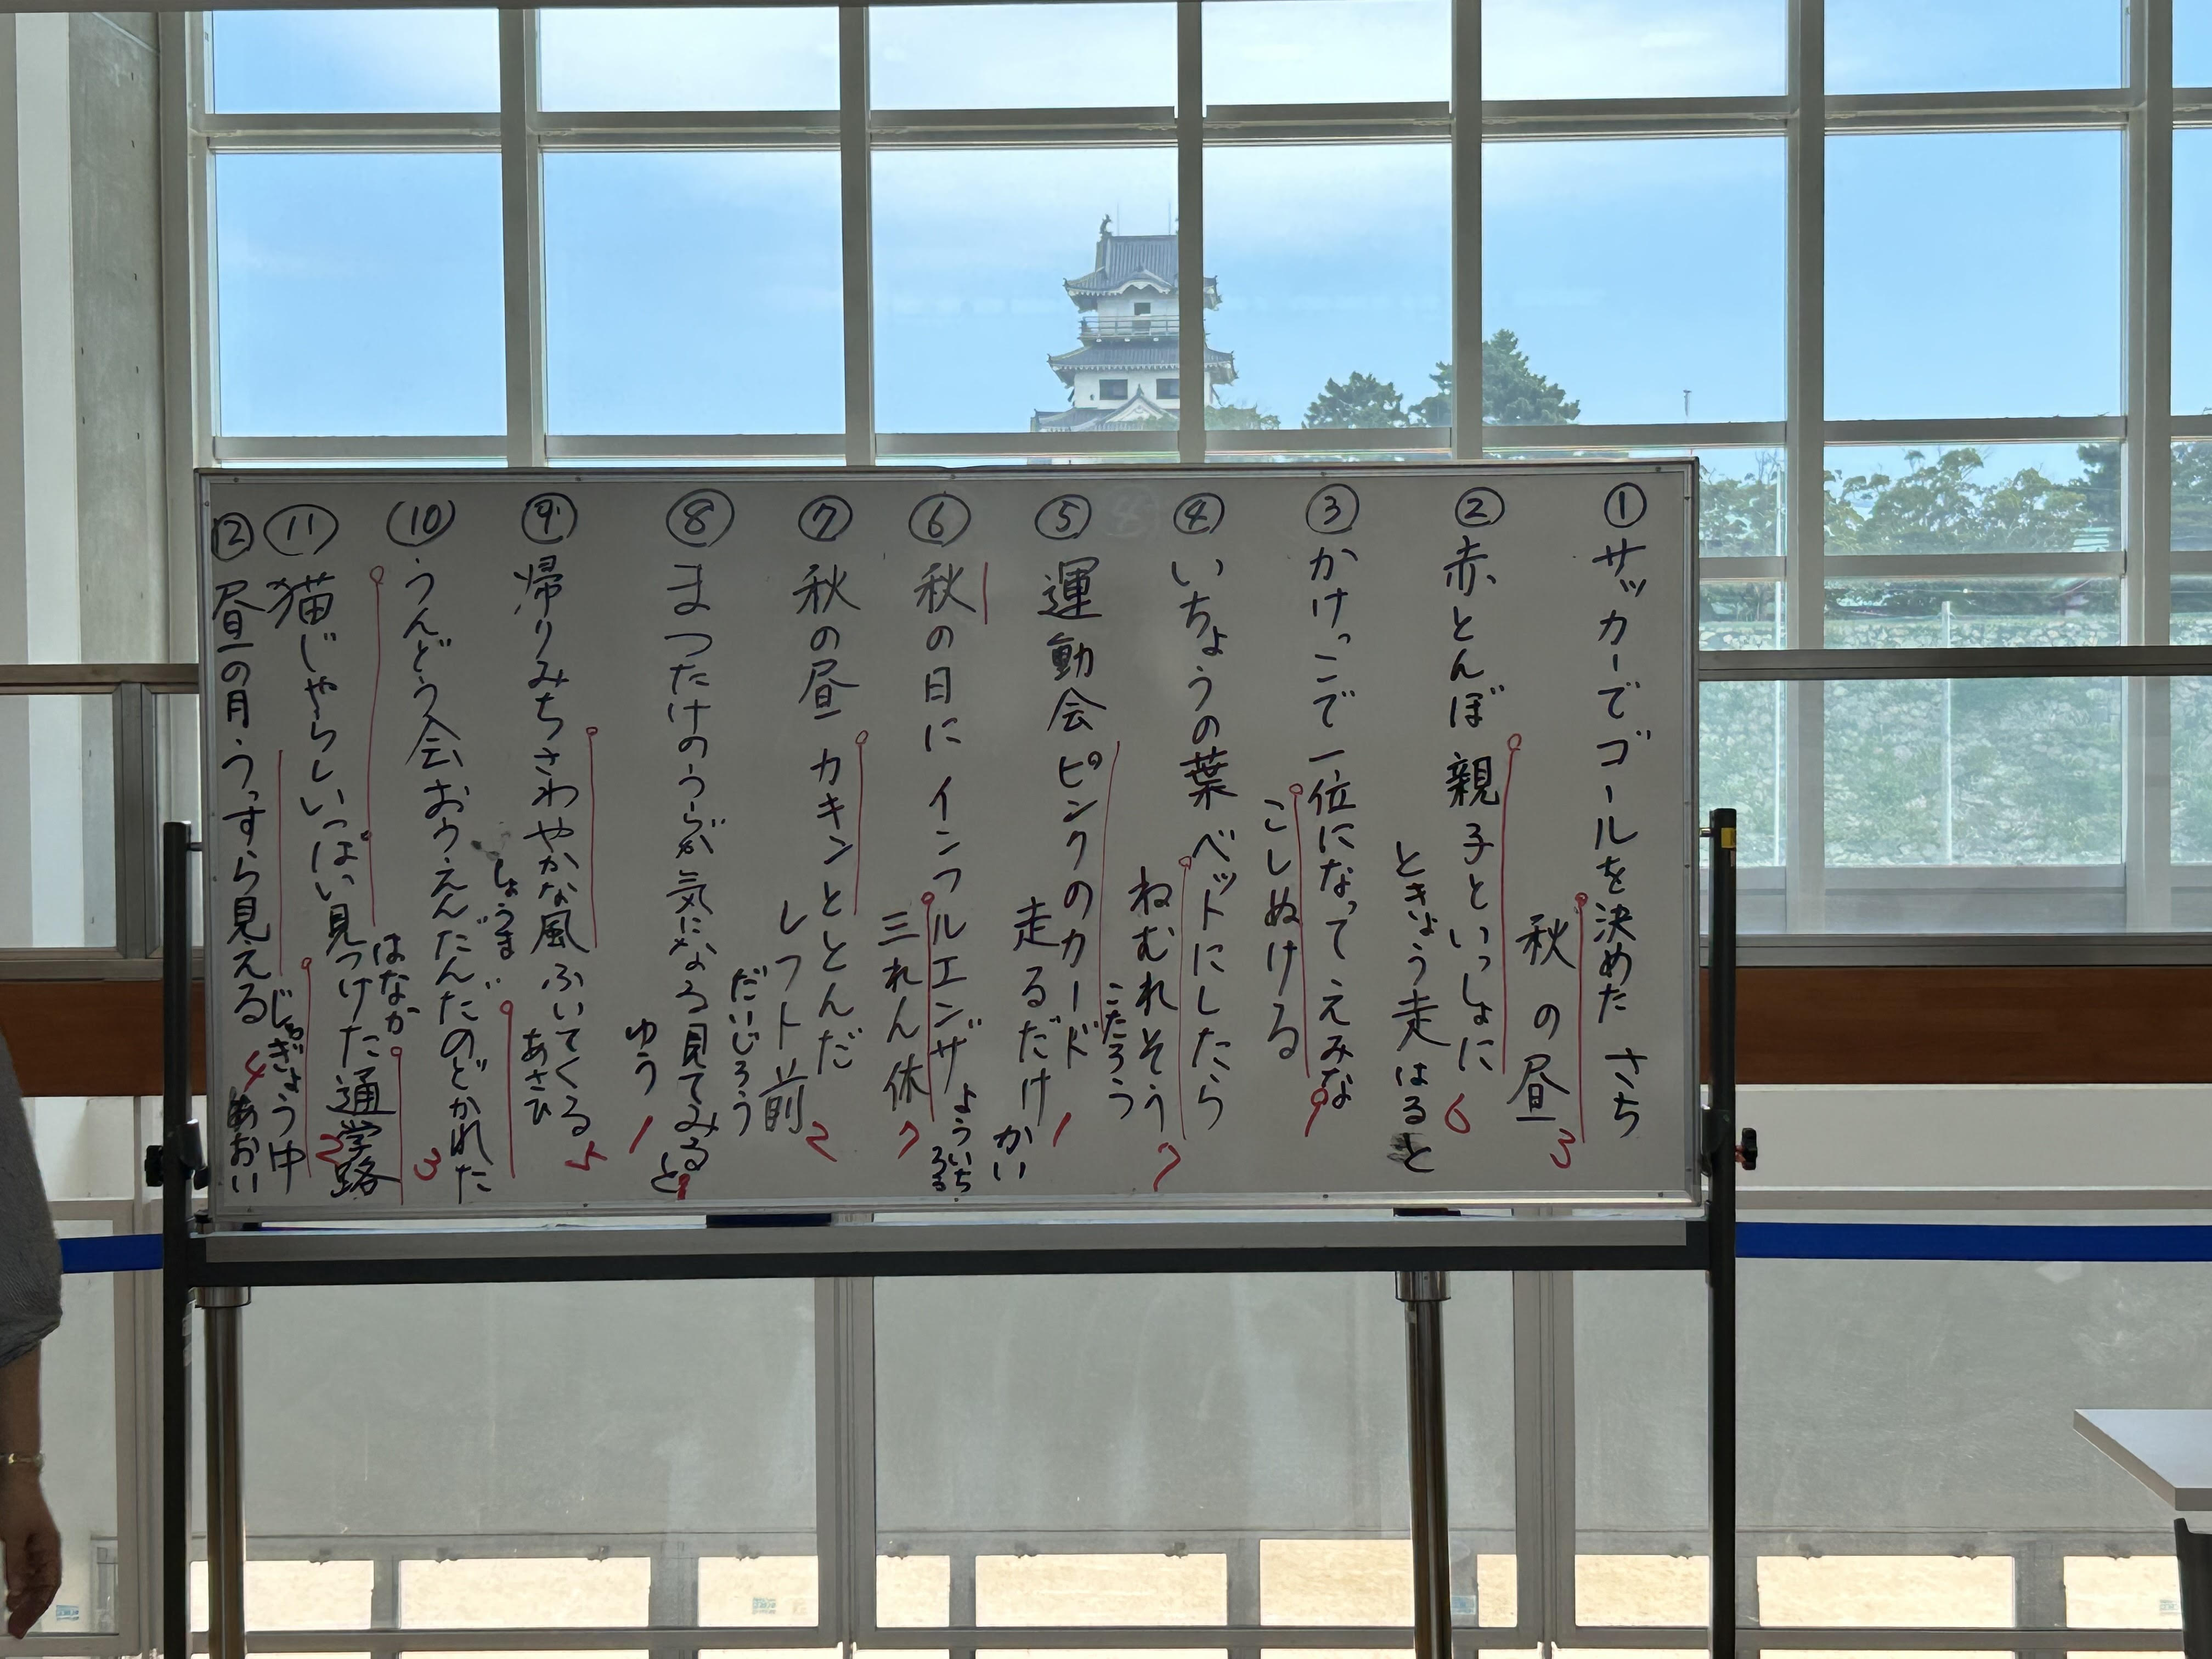 ①サッカーでゴールを決めた さち
秋の昼
3
②赤とんぼ親子といっしょに
ときょう走 はると
6
③かけっこで一位になって えみな
こしぬける
9
④いちょうの葉ベットにしたら
ねむれそう こたろう
7
⑤運動会ピンクのカード
走るだけ かい
1
⑥秋の日にインフルエンザ
三れん休
7
⑦秋の昼カキンととんだ
レフト前 だいじろう
2
⑧まつたけのうらが気になる見てみると
ゆう
1
⑨帰りみちさわやかな風ふいてくる
あさひ
5
⑩うんどう会おうえんだんだのどかれた
しょうま
3
⑪猫じゃらしいっぱい見つけた通学路
はなか
2
⑫昼の月うっすら見える
じゅぎょう中
4
あおい